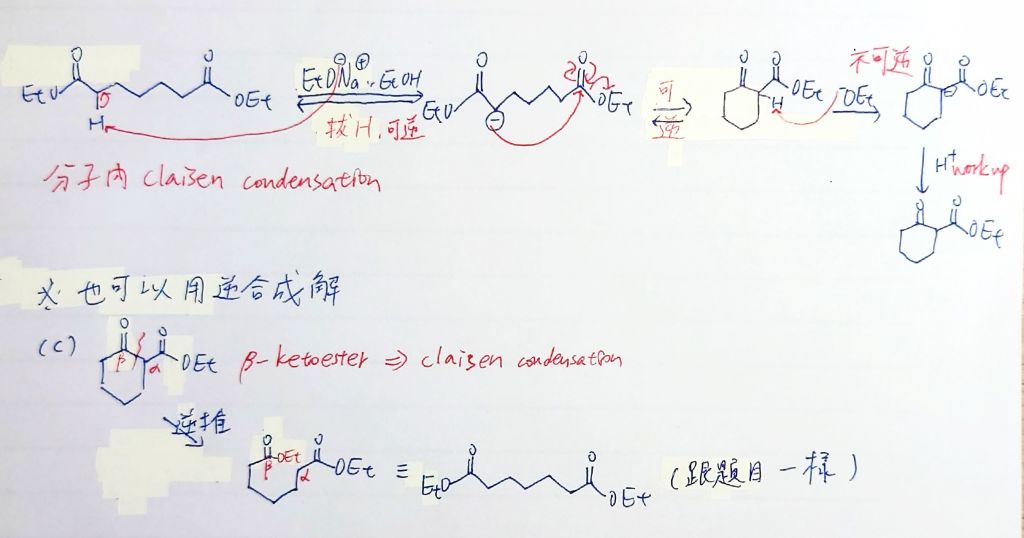 O O EtO OEt H EtO⊖Na⊕, EtOH 拔H,可逆 O O EtO ⊖ OEt 可逆 O O OEt H ⁻OEt 不可逆 O O ⊖ OEt
分子內 claisen condensation
H⁺ workup
O O OEt
※ 也可以用逆合成解
(c) O O β α OEt β-ketoester ⇒ claisen condensation
逆推
O OEt O β α OEt ≡ O O EtO OEt (跟題目一樣)